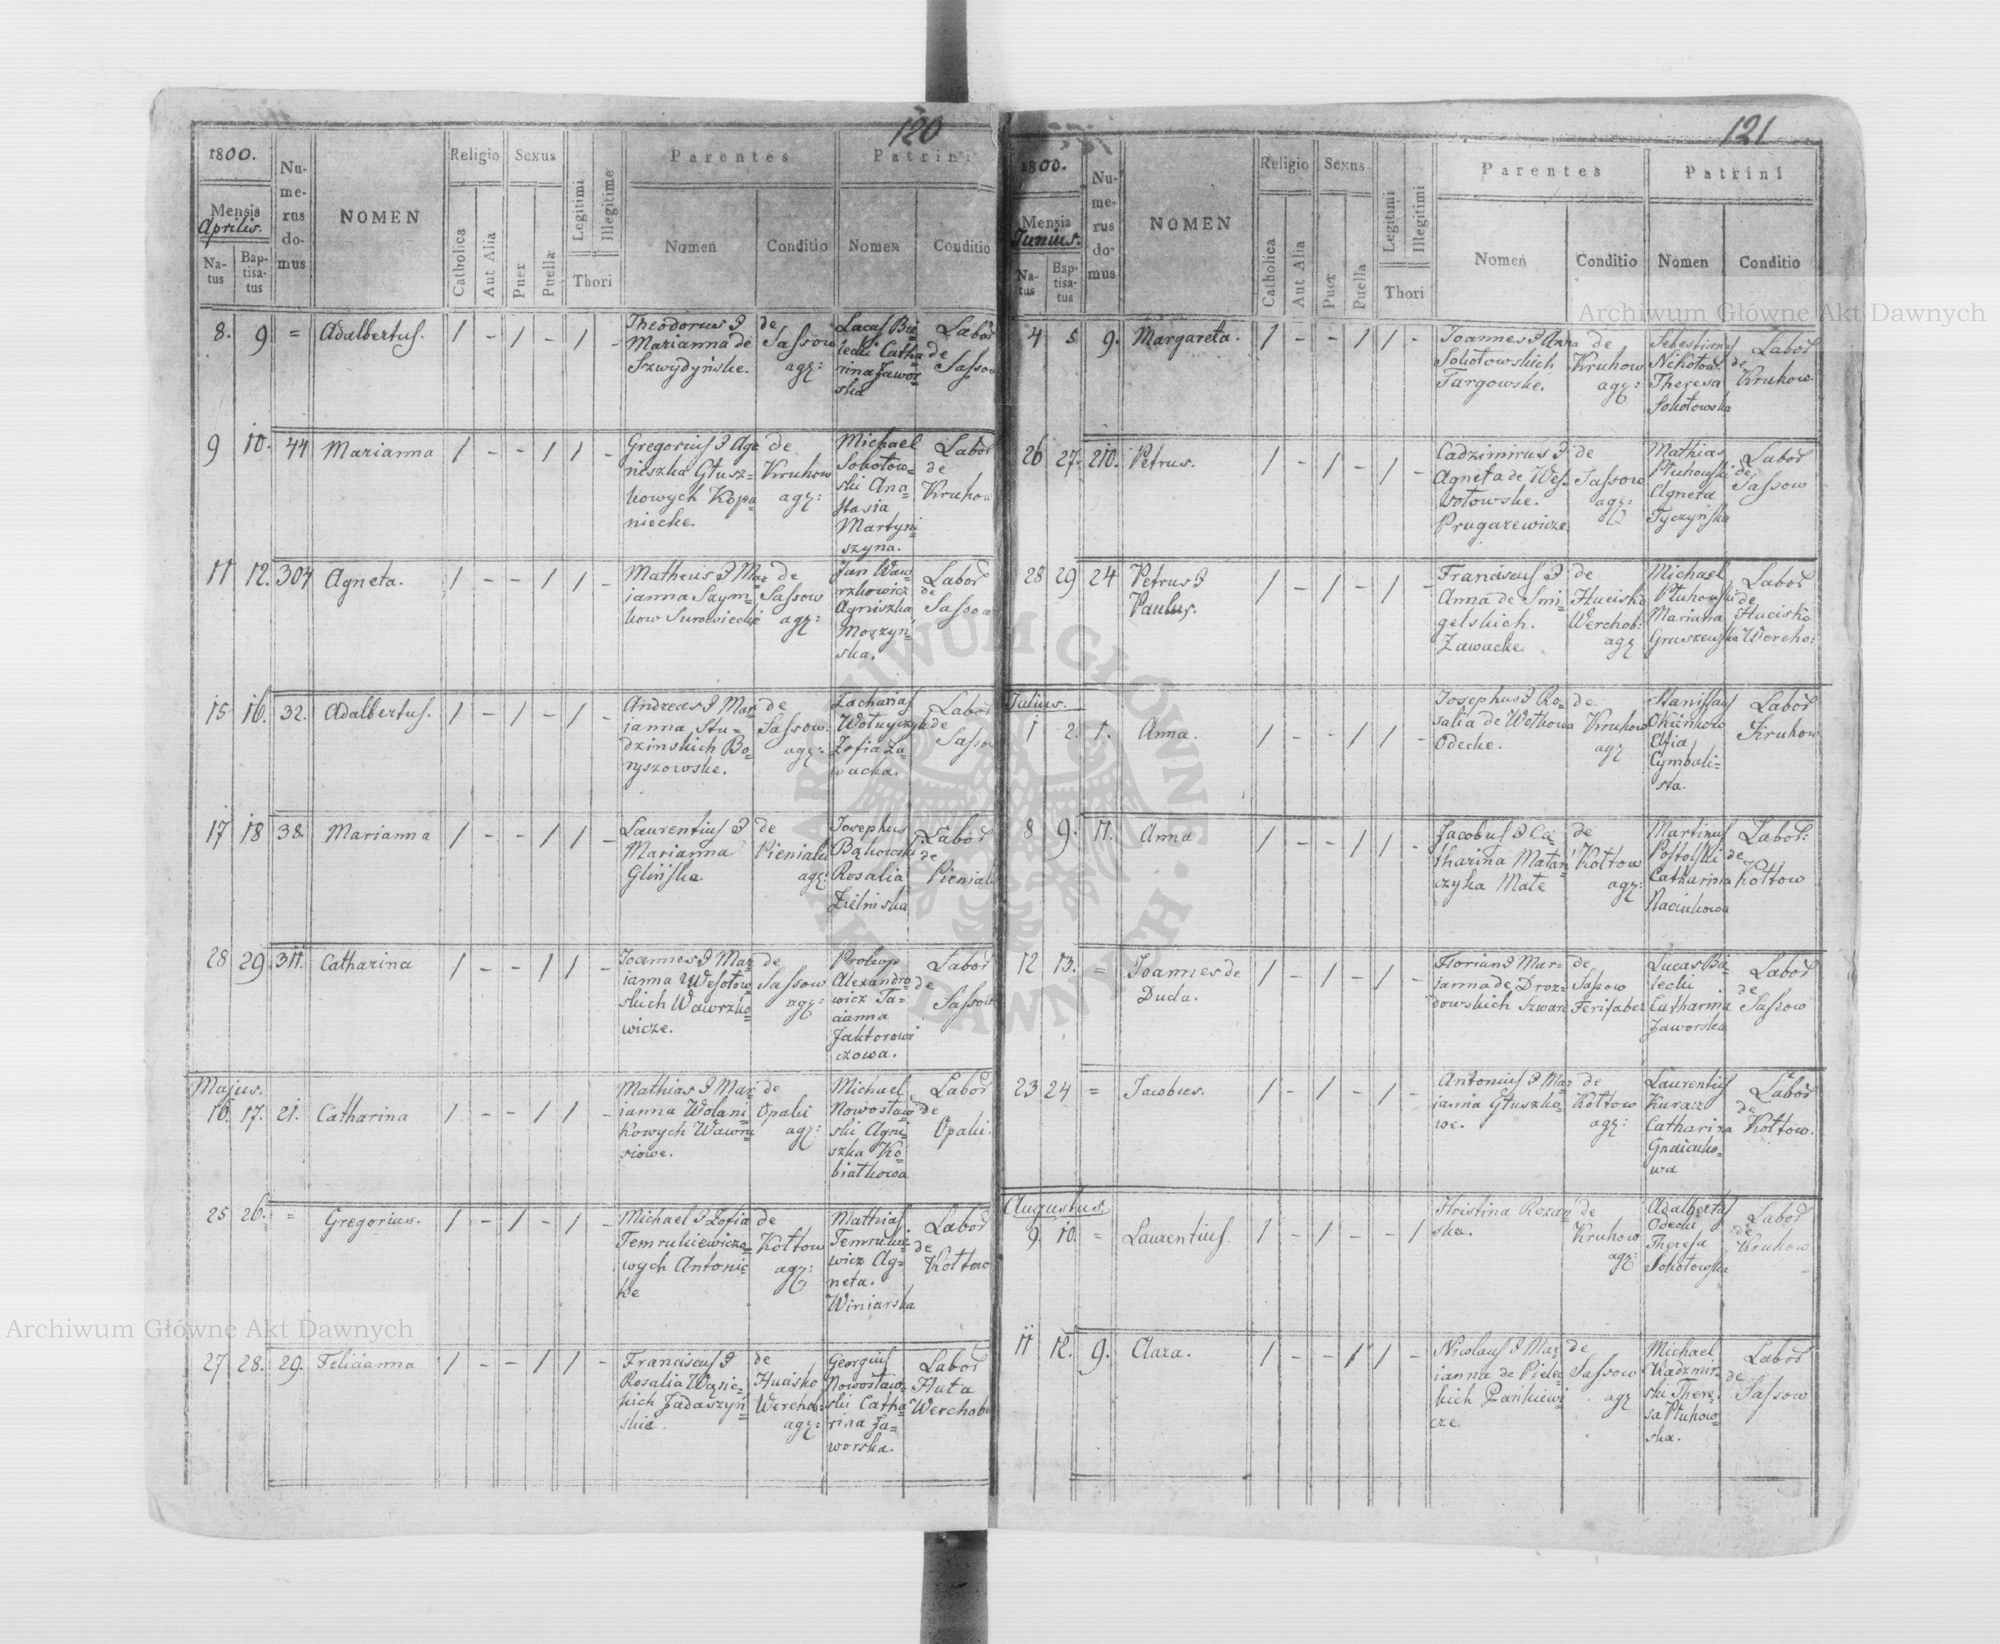 120
1800.
Mensis
Aprilis.
Na-
tus
Bap-
tisa-
tus
Nu-
me-
rus
do-
mus
NOMEN
Religio
Catholica
Aut Alia
Sexus
Puer
Puella
Legitimi
Illegitime
Thori
Parentes
Nomen
Conditio
Patrini
Nomen
Conditio
8. 9 = Adalbertus. 1 - 1 - 1 -
Theodorus &
Marianna de
Szwydyńske.
de
Sassow
agr:
Lucas Bie
lecki Catha
rina Jawor
ska
Labor
de
Sassow
9 10. 44 Marianna 1 - - 1 1 -
Gregorius & Ag
nieszka Głusz
kowych Kopa
niecke.
de
Kruhow
agr:
Michael
Sokołow
ski Ana
stasia
Martyni
szyna.
Labor
de
Kruhow
11 12. 304 Agneta. 1 - - 1 1 -
Matheus & Mar
ianna Szym
kow Surowieckie
de
Sassow
agr:
Jan Waw
rzkowicz
Agniszka
Moszyn
ska.
Labor
de
Sassow
15 16. 32. Adalbertus. 1 - 1 - 1 -
Andreas & Mar
ianna Stu
dzinskich Bo
ryszowske.
de
Sassow.
agr:
Zacharias
Wołuyczyk
Zofia Za
wacka.
Labor
de
Sassow
17 18 38. Marianna 1 - - 1 1 -
Laurentius &
Marianna
Glińske
de
Pieniaki
agr:
Josephus
Bąkowski
Rosalia
Zielinska
Labor
de
Pieniaki
28 29 311. Catharina 1 - - 1 1 -
Joannes & Mar
ianna Wesołow
skich Wawrzko
wicze.
de
Sassow
agr:
Prokop
Alexandro
wicz Ta
cianna
Faktorowi
czowa.
Labor
de
Sassow
Majus.
16. 17. 21. Catharina 1 - - 1 1 -
Mathias & Mar
ianna Wolani
kowych Wawni
rowe.
de
Opaki
agr:
Michael
Nowosław
ski Agni
szka Ko
białkowa
Labor
de
Opaki.
25 26. = Gregorius. 1 - 1 - 1 -
Michael & Zofia
Temrukiewiczo
wych Antonie
ke
de
Kołtow
agr:
Mathias
Temrukie
wicz Ag
neta.
Winiarska
Labor
de
Kołtow
27 28. 29. Felicianna 1 - - 1 1 -
Franciscus &
Rosalia Wąsic
kich Jadaszyń
skie
de
Hucisko
Werchob:
agr:
Georgius
Nowosław
ski Catha
rina Ja
worska.
Labor
Huta
Werchobu
121
1800.
Mensis
Junius.
Na-
tus
Bap-
tisa-
tus
Nu-
me-
rus
do-
mus
NOMEN
Religio
Catholica
Aut Alia
Sexus
Puer
Puella
Legitimi
Illegitimi
Thori
Parentes
Nomen
Conditio
Patrini
Nomen
Conditio
4 5 9. Margareta. 1 - - 1 1 -
Joannes & Anna
Sokołowskich
Targowske.
de
Kruhow
agr:
Sebestianus
Nikołow.
Theresa
Sokołowska
Labor
de
Kruhow.
26 27. 210. Petrus. 1 - 1 - 1 -
Cadzimirus &
Agneta de Wes
sołowske.
Prugarewicze
de
Sassow
agr:
Mathias
Płuhowski
Agneta
Tyczyńska
Labor
de
Sassow
28 29 24 Petrus &
Paulus. 1 - 1 - 1 -
Franciscus &
Anna de Smi
gelskich.
Zawacke.
de
Hucisko
Werchob:
agr
Michael
Płuhowski
Mariana
Gruszewska
Labor
de
Hucisko
Wercho:
Julius.
1 2. 1. Anna. 1 - - 1 1 -
Josephus & Ro
salia de Wołkowa
Odecke.
de
Kruhow
agr
Stanislaus
Okienkow
Elia
Cymbali
sta.
Labor
Kruhow
8 9. 11. Anna 1 - - 1 1 -
Jacobus & Ca
tharina Małan
czyka Małe
de
Kołtow
agr:
Martinus
Postolski
Catharina
Naciukowa
Labor:
de
Kołtow
12 13. = Joannes de
Duda. 1 - 1 - 1 -
Florian & Mar
ianna de Droz
dowskich Szward
de
Sassow
Ferifaber
Lucas Bie
lecki
Catharina
Jaworska
Labor
de
Sassow
23 24 = Jacobus. 1 - 1 - 1 -
Antonius & Mar
ianna Głuszko
we.
de
Kołtow
agr:
Laurentius
Kuracz
Catharina
Gnaciuko
wa
Labor
de
Kołtow.
Augustus
9 10. = Laurentius. 1 - 1 - - 1
Hristina Rozan
ska.
de
Kruhow
agr:
Adalbertus
Odecki
Theresa
Sokołowska
Labor
de
Kruhow
11 12. 9. Clara. 1 - - 1 1 -
Nicolaus & Mar
ianna de Piele
kich Pańkiewi
cze
de
Sassow
agr
Michael
Kadzmir
ski There
sa Płuhow
ska.
Labor
de
Sassow
Archiwum Główne Akt Dawnych
Archiwum Główne Akt Dawnych
ARCHIWUM GŁÓWNE AKT DAWNYCH